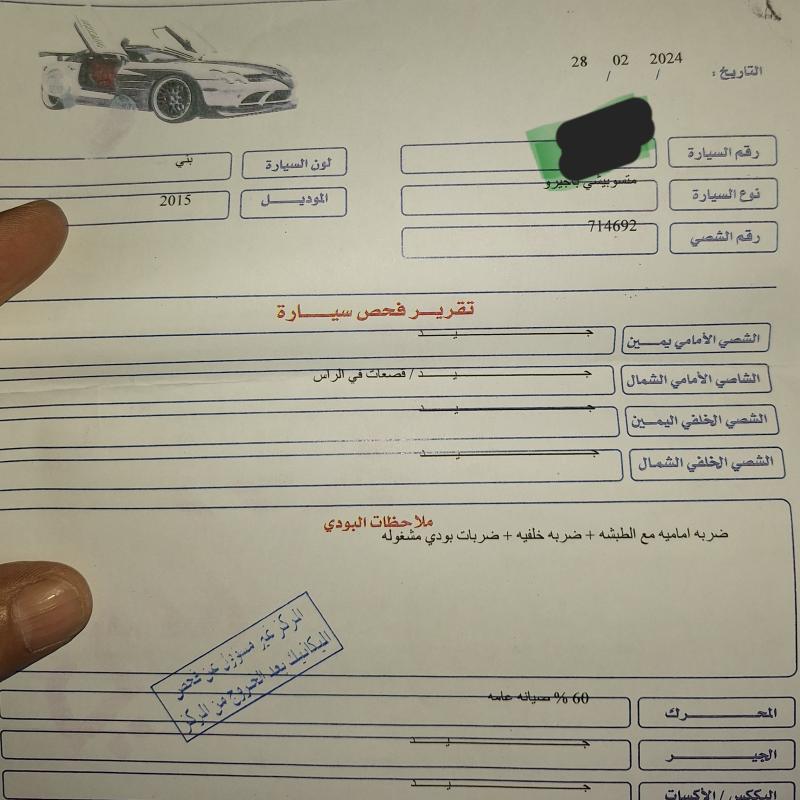 التاريخ : 28 / 02 / 2024
رقم السيارة
لون السيارة بني
نوع السيارة متسوبيشي باجيرو
الموديـــل 2015
رقم الشصي 714692
تقريـــر فحص سيـــارة
الشصي الأمامي يمـــين جـــيـــد
الشاصي الأمامي الشمال جـــيـــد / قصعات في الراس
الشصي الخلفي اليمـــين جـــيـــد
الشصي الخلفي الشمال جـــيـــد
ملاحظات البودي
ضربه اماميه مع الطبشه + ضربه خلفيه + ضربات بودي مشغوله
المركز غير مسؤول عن فحص
الميكانيك بعد الخروج من المركز
المحـــرك 60 % صيانه عامه
الجيـــر جـــيـــد
البكــس / الأكسات جـــيـــد